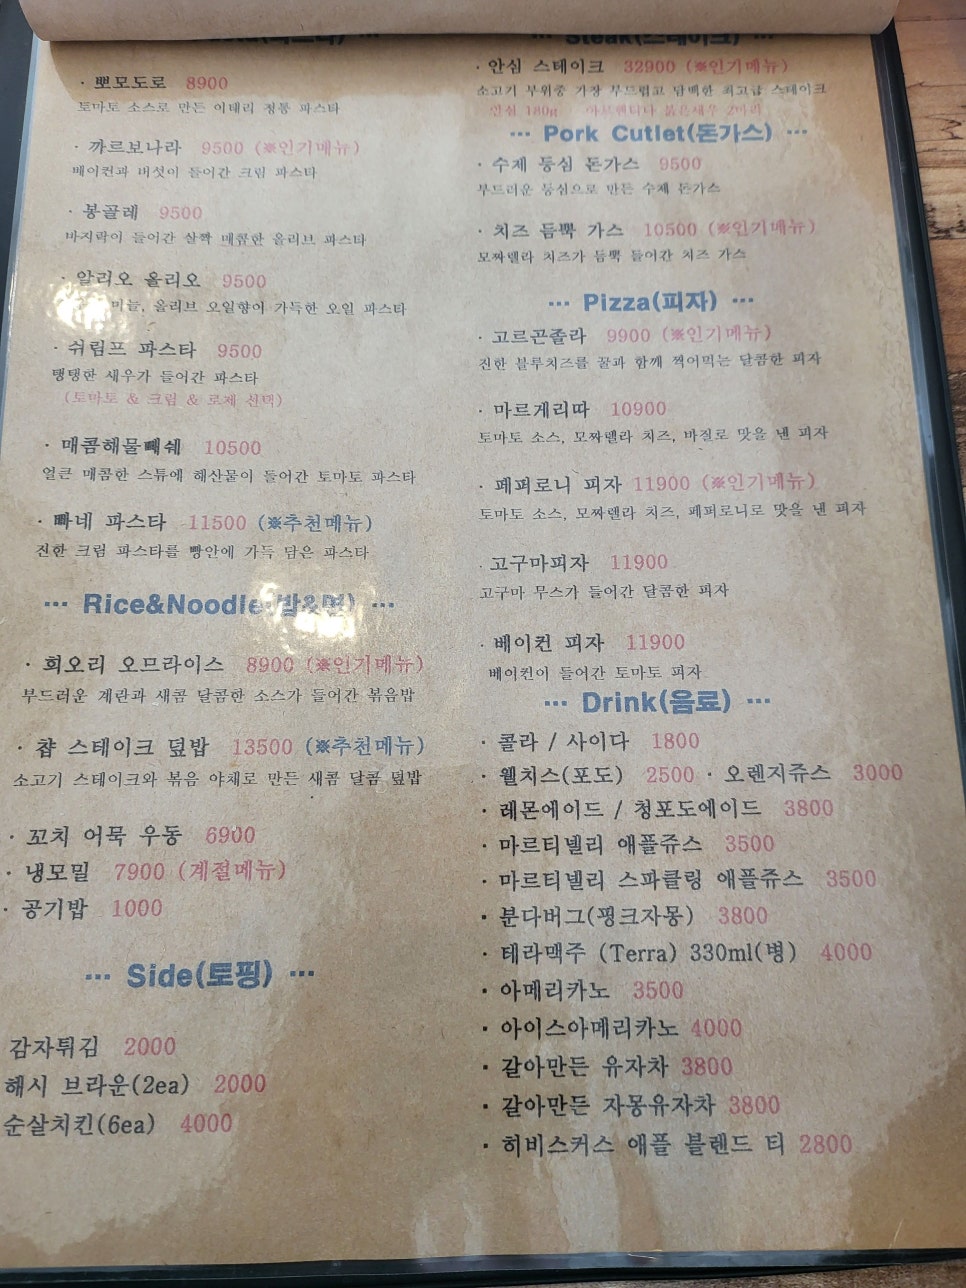 · 뽀모도로 8900
토마토 소스로 만든 이태리 정통 파스타
· 까르보나라 9500 (※인기메뉴)
베이컨과 버섯이 들어간 크림 파스타
· 봉골레 9500
바지락이 들어간 살짝 매콤한 올리브 파스타
· 알리오 올리오 9500
마늘, 올리브 오일향이 가득한 오일 파스타
· 쉬림프 파스타 9500
탱탱한 새우가 들어간 파스타
(토마토 & 크림 & 로제 선택)
· 매콤해물빼쉐 10500
얼큰 매콤한 스튜에 해산물이 들어간 토마토 파스타
· 빠네 파스타 11500 (※추천메뉴)
진한 크림 파스타를 빵안에 가득 담은 파스타
··· Rice&Noodle(밥&면) ···
· 회오리 오므라이스 8900 (※인기메뉴)
부드러운 계란과 새콤 달콤한 소스가 들어간 볶음밥
· 챱 스테이크 덮밥 13500 (※추천메뉴)
소고기 스테이크와 볶음 야채로 만든 새콤 달콤 덮밥
· 꼬치 어묵 우동 6900
· 냉모밀 7900 (계절메뉴)
· 공기밥 1000
··· Side(토핑) ···
감자튀김 2000
해시 브라운(2ea) 2000
순살치킨(6ea) 4000
··· Steak(스테이크) ···
· 안심 스테이크 32900 (※인기메뉴)
소고기 부위중 가장 부드럽고 담백한 최고급 스테이크
안심 180g 아르헨티나 붉은새우 2마리
··· Pork Cutlet(돈가스) ···
· 수제 등심 돈가스 9500
부드러운 등심으로 만든 수제 돈가스
· 치즈 듬뿍 가스 10500 (※인기메뉴)
모짜렐라 치즈가 듬뿍 들어간 치즈 가스
··· Pizza(피자) ···
· 고르곤졸라 9900 (※인기메뉴)
진한 블루치즈를 꿀과 함께 찍어먹는 달콤한 피자
· 마르게리따 10900
토마토 소스, 모짜렐라 치즈, 바질로 맛을 낸 피자
· 페퍼로니 피자 11900 (※인기메뉴)
토마토 소스, 모짜렐라 치즈, 페퍼로니로 맛을 낸 피자
· 고구마피자 11900
고구마 무스가 들어간 달콤한 피자
· 베이컨 피자 11900
베이컨이 들어간 토마토 피자
··· Drink(음료) ···
· 콜라 / 사이다 1800
· 웰치스(포도) 2500 · 오렌지쥬스 3000
· 레몬에이드 / 청포도에이드 3800
· 마르티넬리 애플쥬스 3500
· 마르티넬리 스파클링 애플쥬스 3500
· 분다버그(핑크자몽) 3800
· 테라맥주 (Terra) 330ml(병) 4000
· 아메리카노 3500
· 아이스아메리카노 4000
· 갈아만든 유자차 3800
· 갈아만든 자몽유자차 3800
· 히비스커스 애플 블렌드 티 2800